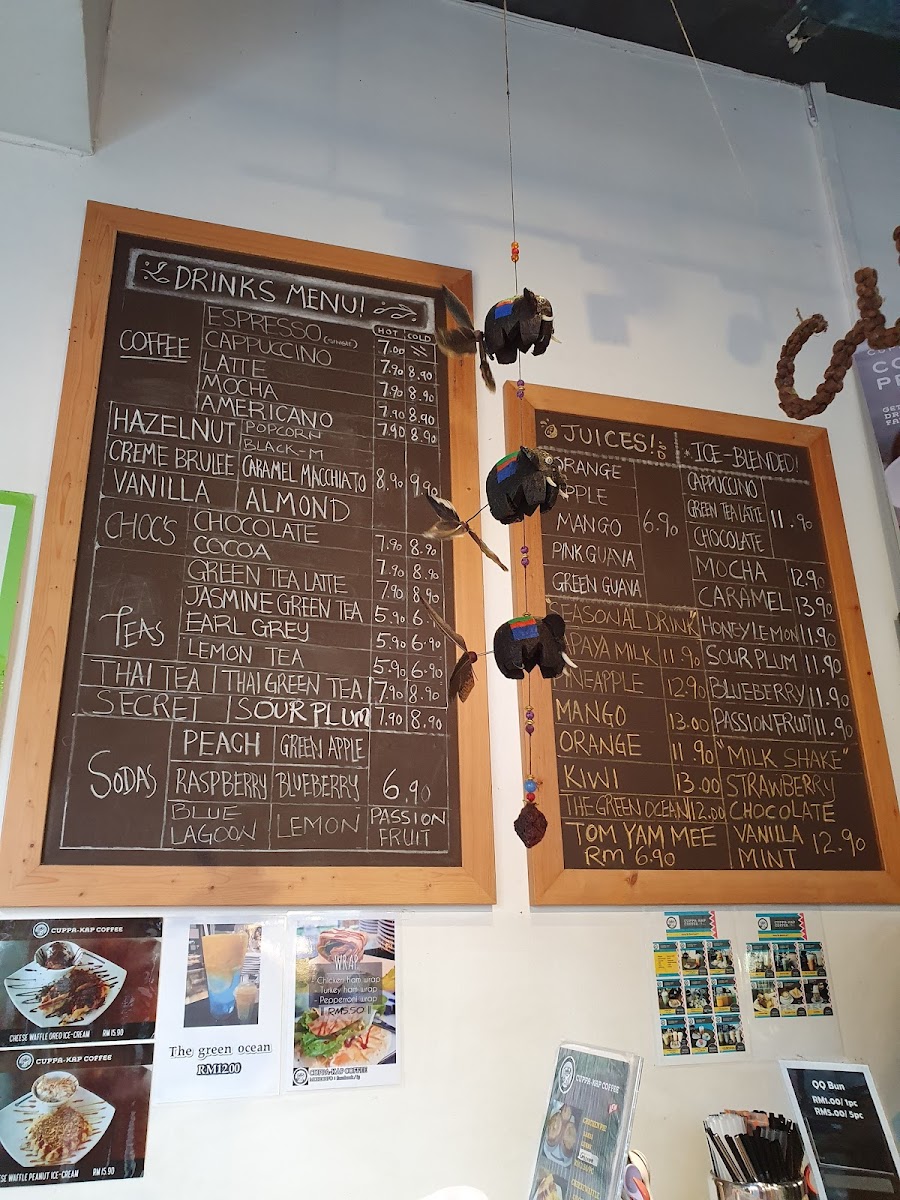 DRINKS MENU!
HOT COLD
COFFEE
ESPRESSO 7.00
CAPPUCCINO 7.90 8.90
LATTE 7.90 8.90
MOCHA 7.90 8.90
AMERICANO 7.90 8.90
HAZELNUT POPCORN
BLACK-M
CREME BRULEE CARAMEL MACCHIATO 8.90 9.90
VANILLA ALMOND
CHOC'S CHOCOLATE 7.90 8.90
COCOA 7.90 8.90
TEAS
GREEN TEA LATTE 7.90 8.90
JASMINE GREEN TEA 5.90 6.90
EARL GREY 5.90 6.90
LEMON TEA 5.90 6.90
THAI TEA THAI GREEN TEA 7.90 8.90
SECRET SOUR PLUM 7.90 8.90
SODAS
PEACH GREEN APPLE
RASPBERRY BLUEBERRY 6.90
BLUE LAGOON LEMON PASSION FRUIT
JUICES!
ORANGE
APPLE
MANGO 6.90
PINK GUAVA
GREEN GUAVA
SEASONAL DRINK
PAPAYA MILK 11.90
PINEAPPLE 12.90
MANGO 13.00
ORANGE 11.90
KIWI 13.00
THE GREEN OCEAN 12.00
TOM YAM MEE
RM 6.90
ICE-BLENDED!
CAPPUCCINO
GREEN TEA LATTE 11.90
CHOCOLATE
MOCHA 12.90
CARAMEL 13.90
HONEY LEMON 11.90
SOUR PLUM 11.90
BLUEBERRY 11.90
PASSIONFRUIT 11.90
"MILK SHAKE"
STRAWBERRY
CHOCOLATE
VANILLA 12.90
MINT
CUPPA-KAP COFFEE
CHEESE WAFFLE OREO ICE-CREAM RM 15.90
CUPPA-KAP COFFEE
WAFFLE PEANUT ICE-CREAM RM 15.90
The green ocean
RM12.00
WRAP
- Chicken ham wrap
- Turkey ham wrap
- Pepperroni wrap
RM5.50
CUPPA-KAP COFFEE
CUPPA-KAP COFFEE
QQ Bun
RM1.00/ 1pc
RM5.00/ 5pc